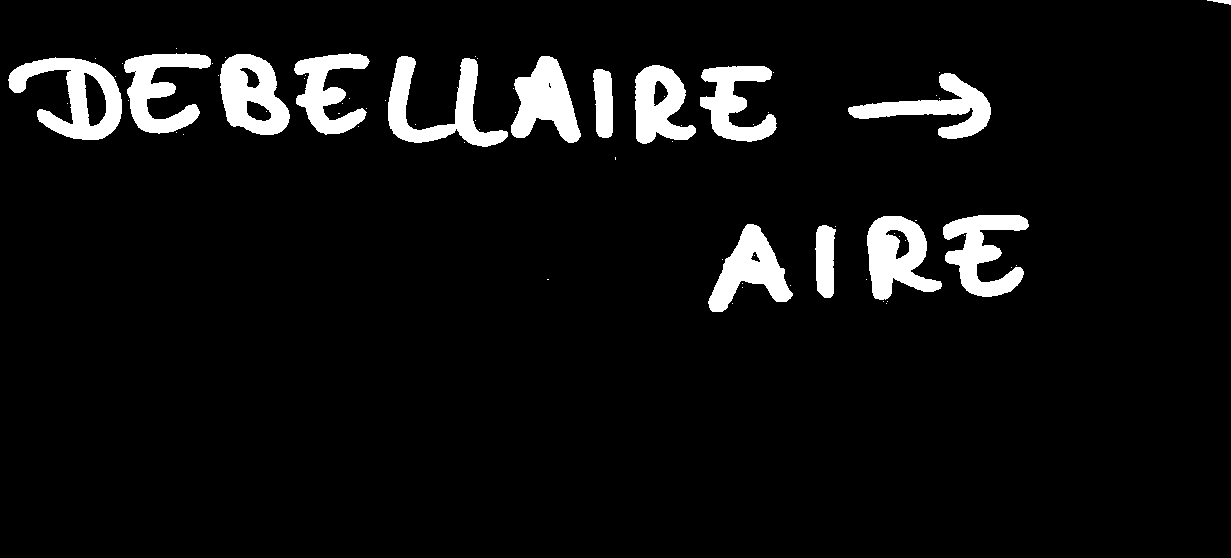 DEBELLAIRE →
AIRE